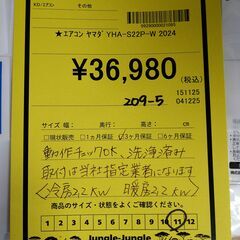 KD/エアコン その他
9929000021085
★エアコン ヤマダ YHA-S22P-W 2024
¥36,980(税込)
209-5
151125
041225
サイズ 幅: 奥行き: 高さ: cm
□現状販売 □1ヵ月保証 3ヶ月保証 □6ヶ月保証
動作チェックOK、洗浄済み
取付は当社指定業者になります
冷房2.2kW 暖房2.2kW
商品のサイズ・状態をよくご確認ください。
1 2 3 4 5 6 7 8 9 10 11 12
Jungle-Jungle